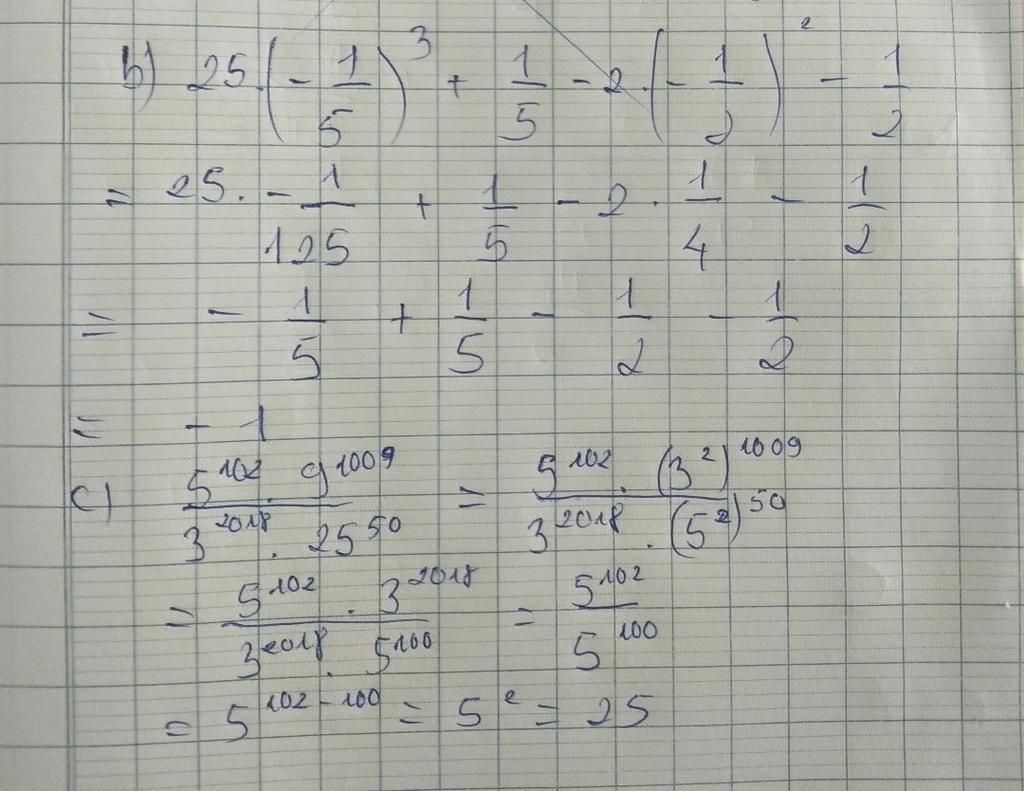 b) 25.(-1/5)^3 + 1/5 - 2.(-1/2)^2 - 1/2
= 25. -1/125 + 1/5 - 2 . 1/4 - 1/2
= - 1/5 + 1/5 - 1/2 - 1/2
= - 1
c) (5^102 . 9^1009)/(3^2018 . 25^50) = (5^102 . (3^2)^1009)/(3^2018 . (5^2)^50)
= (5^102 . 3^2018)/(3^2018 . 5^100) = 5^102/5^100
= 5^(102-100) = 5^2 = 25